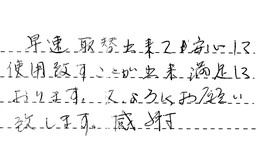 早速取替出来て安心して
使用致すことが出来満足して
おります。よろしくお願い
致します。感謝